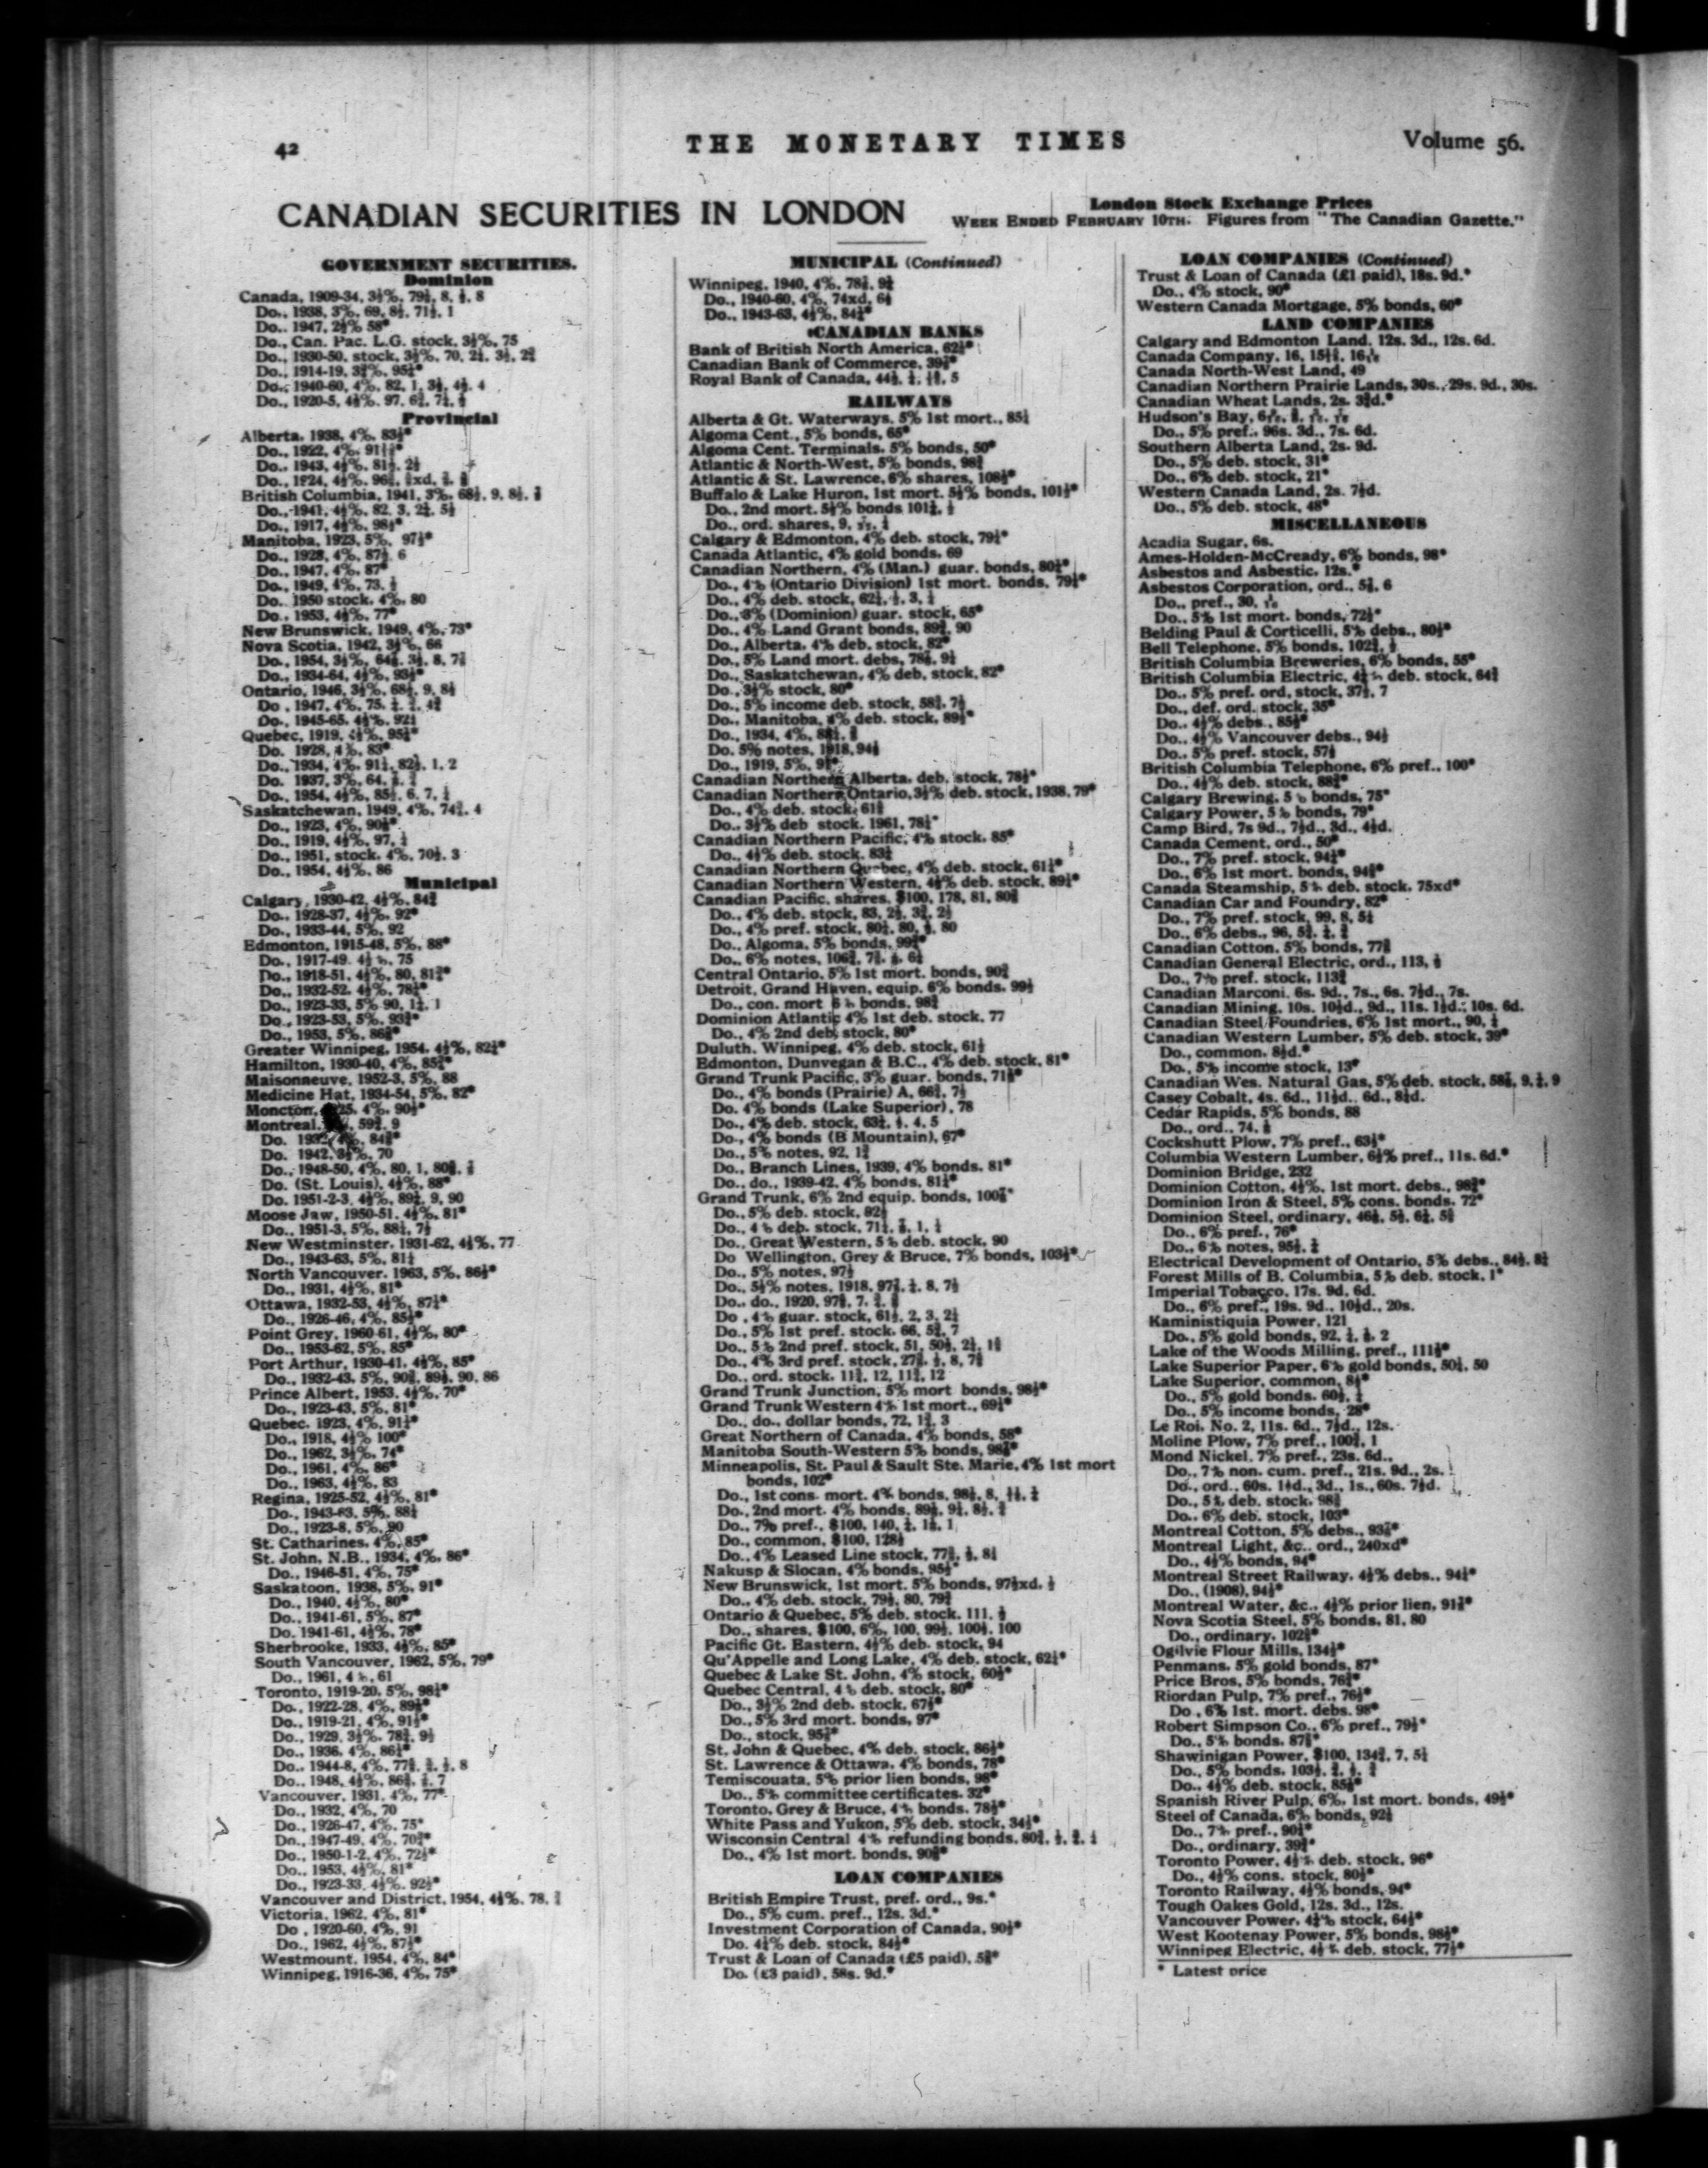 42
THE MONETARY TIMES
Volume 56.
CANADIAN SECURITIES IN LONDON
London Stock Exchange Prices
WEEK ENDED FEBRUARY 10TH. Figures from "The Canadian Gazette."
GOVERNMENT SECURITIES.
Dominion
Canada, 1909-34, 3½%, 79½, 8, ½, 8
Do., 1938, 3%, 69, 8½, 71½, 1
Do., 1947, 2½% 58*
Do., Can. Pac. L.G. stock, 3½%, 75
Do., 1930-50, stock, 3½%, 70,
Do., 1914-19,
Do., 1940-60, 4%, 82, 1,
Do., 1920-5, 4½%, 97,
Provincial
Alberta, 1938, 4%, 83½*
Do., 1922, 4%,
Do., 1943, 4½%, 81½, 2½
Do., 1924, 4½%,
British Columbia, 1941, 3%, 68½, 9, 8½,
Do., 1941, 4½%, 82, 3,
Do., 1917, 4½%, 98½*
Manitoba, 1923, 5%, 97½*
Do., 1928, 4%, 87½, 6
Do., 1947, 4%, 87*
Do., 1949, 4%, 73, ½
Do., 1950 stock, 4%, 80
Do., 1953, 4½%, 77*
New Brunswick, 1949, 4%, 73*
Nova Scotia, 1942, 3½%, 66
Do., 1954, 3½%,
Do., 1934-64, 4½%, 93½*
Ontario, 1946, 3½%, 68½, 9, 8½
Do., 1947, 4%, 75,
Do., 1945-65, 4½%, 92½
Quebec, 1919, 4½%,
Do. 1928, 4%, 83*
Do., 1934, 4%, 91½, 82½, 1, 2
Do. 1937, 3%, 64,
Do., 1954, 4½%, 85½, 6, 7, ½
Saskatchewan, 1949, 4%, 4
Do., 1923, 4%,
Do., 1919, 4½%, 97, ½
Do., 1951, stock, 4%, 70½, 3
Do., 1954, 4½%, 86
Municipal
Calgary, 1930-42, 4½%,
Do., 1928-37, 4½%, 92*
Do., 1933-44, 5%, 92
Edmonton, 1915-48, 5%, 88*
Do., 1917-49, 4½%, 75
Do., 1918-51, 4½%, 80,
Do., 1932-52, 4½%,
Do., 1923-33, 5% 90, 1
Do., 1923-53, 5%,
Do., 1953, 5%,
Greater Winnipeg, 1954, 4½%, 82½*
Hamilton, 1930-40, 4%,
Maisonneuve, 1952-3, 5%, 88
Medicine Hat, 1934-54, 5%, 82*
Moncton, 4%, 90½*
Montreal, 9
Do. 1932, 4%,
Do. 1942, 3½%, 70
Do., 1948-50, 4%, 80, 1,
Do. (St. Louis), 4½%, 88*
Do. 1951-2-3, 4½%, 9, 90
Moose Jaw, 1950-51, 4½%, 81*
Do., 1951-3, 5%, 88½, 7½
New Westminster, 1931-62, 4½%, 77
Do., 1943-63, 5%, 81½
North Vancouver, 1963, 5%, 86½*
Do., 1931, 4½%, 81*
Ottawa, 1932-53, 4½%, 87½*
Do., 1926-46, 4%, 85½*
Point Grey, 1960-61, 4½%, 80*
Do., 1953-62, 5%, 85*
Port Arthur, 1930-41, 4½%, 85*
Do., 1932-43, 5%, 90, 86
Prince Albert, 1953, 4½%, 70*
Do., 1923-43, 5%, 81*
Quebec, 1923, 4%, 91½*
Do., 1918, 4½% 100*
Do., 1962, 3½%, 74*
Do., 1961, 4%, 86*
Do., 1963, 4½%, 83
Regina, 1925-52, 4½%, 81*
Do., 1943-63, 5%, 88½
Do., 1923-8, 5%, 90
St. Catharines, 4%, 85*
St. John, N.B., 1934, 4%, 86*
Do., 1946-51, 4%, 75*
Saskatoon, 1938, 5%, 91*
Do., 1940, 4½%, 80*
Do., 1941-61, 5%, 87*
Do. 1941-61, 4½%, 78*
Sherbrooke, 1933, 4½%, 85*
South Vancouver, 1962, 5%, 79*
Do., 1961, 4%, 61
Toronto, 1919-20, 5%, 98½*
Do., 1922-28, 4%, 89½*
Do., 1919-21, 4%, 91½*
Do., 1929, 3½%,
Do., 1936, 4%, 86½*
Do., 1944-8, 4%, 8
Do., 1948, 4½%, 7
Vancouver, 1931, 4%, 77*
Do., 1932, 4%, 70
Do., 1926-47, 4%, 75*
Do., 1947-49, 4%,
Do., 1950-1-2, 4%, 72½*
Do., 1953, 4½%, 81*
Do., 1923-33, 4½%, 92½*
Vancouver and District, 1954, 4½%, 78,
Victoria, 1962, 4%, 81*
Do., 1920-60, 4%, 91
Do., 1962, 4½%, 87½*
Westmount, 1954, 4%, 84*
Winnipeg, 1916-36, 4%, 75*
MUNICIPAL (Continued)
Winnipeg, 1940, 4%, 78½, 9½
Do., 1940-60, 4%, 74xd, 6½
Do., 1943-63, 4½%, 84½*
CANADIAN BANKS
Bank of British North America, 62½*
Canadian Bank of Commerce,
Royal Bank of Canada, 5
RAILWAYS
Alberta & Gt. Waterways, 5% 1st mort., 85½
Algoma Cent., 5% bonds, 65*
Algoma Cent. Terminals, 5% bonds, 50*
Atlantic & North-West, 5% bonds,
Atlantic & St. Lawrence, 6% shares, 108½*
Buffalo & Lake Huron, 1st mort. 5½% bonds, 101½*
Do., 2nd mort. 5½% bonds 101½, ½
Do., ord. shares, 9,
Calgary & Edmonton, 4% deb. stock, 79½*
Canada Atlantic, 4% gold bonds, 69
Canadian Northern, 4% (Man.) guar. bonds, 80½*
Do., 4% (Ontario Division) 1st mort. bonds, 79½*
Do., 4% deb. stock, 62½, ½, 3, ½
Do., 3% (Dominion) guar. stock, 65*
Do., 4% Land Grant bonds, 90
Do., Alberta, 4% deb. stock, 82*
Do., 5% Land mort. debs,
Do., Saskatchewan, 4% deb. stock, 82*
Do., 3½% stock, 80*
Do., 5% income deb. stock,
Do., Manitoba, 4% deb. stock, 89½*
Do., 1934, 4%,
Do. 5% notes, 1918, 94½
Do., 1919, 5%,
Canadian Northern Alberta, deb. stock, 78½*
Canadian Northern Ontario, 3½% deb. stock, 1938, 79*
Do., 4% deb. stock,
Do., 3½% deb stock, 1961, 78½*
Canadian Northern Pacific, 4% stock, 85*
Do., 4½% deb. stock, 83½
Canadian Northern Quebec, 4% deb. stock, 61½*
Canadian Northern Western, 4½% deb. stock, 89½*
Canadian Pacific, shares, $100, 178, 81,
Do., 4% deb. stock, 83,
Do., 4% pref. stock, 80½, 80, ½, 80
Do., Algoma, 5% bonds,
Do., 6% notes,
Central Ontario, 5% 1st mort. bonds,
Detroit, Grand Haven, equip. 6% bonds, 99½
Do., con. mort 6% bonds,
Dominion Atlantic 4% 1st deb. stock, 77
Do., 4% 2nd deb. stock, 80*
Duluth, Winnipeg, 4% deb. stock, 61½
Edmonton, Dunvegan & B.C., 4% deb. stock, 81*
Grand Trunk Pacific, 3% guar. bonds, 71½*
Do., 4% bonds (Prairie) A,
Do. 4% bonds (Lake Superior), 78
Do., 4% deb. stock, 63½, ½, 4, 5
Do., 4% bonds (B Mountain), 67*
Do., 5% notes, 92,
Do., Branch Lines, 1939, 4% bonds, 81*
Do., do., 1939-42, 4% bonds, 81½*
Grand Trunk, 6% 2nd equip. bonds,
Do., 5% deb. stock, 82½
Do., 4% deb. stock,
Do., Great Western, 5% deb. stock, 90
Do Wellington, Grey & Bruce, 7% bonds, 103½*
Do., 5% notes, 97½
Do., 5½% notes, 1918, 8, 7½
Do., do., 1920,
Do., 4% guar. stock, 61½, 2, 3, 2½
Do., 5% 1st pref. stock, 66, 7
Do., 5% 2nd pref. stock, 51,
Do., 4% 3rd pref. stock,
Do., ord. stock, 12, 12
Grand Trunk Junction, 5% mort bonds, 98½*
Grand Trunk Western 4% 1st mort., 69½*
Do., do., dollar bonds, 72, 3
Great Northern of Canada, 4% bonds, 58*
Manitoba South-Western 5% bonds,
Minneapolis, St. Paul & Sault Ste. Marie, 4% 1st mort
bonds, 102*
Do., 1st cons. mort. 4% bonds, 98½, 8,
Do., 2nd mort. 4% bonds,
Do., 7% pref., $100, 140, 1
Do., common, $100, 128½
Do., 4% Leased Line stock,
Nakusp & Slocan, 4% bonds, 95½*
New Brunswick, 1st mort. 5% bonds, 97½xd, ½
Do., 4% deb. stock, 79½, 80,
Ontario & Quebec, 5% deb. stock, 111, ½
Do., shares, $100, 6%, 100, 99½, 100½, 100
Pacific Gt. Eastern, 4½% deb. stock, 94
Qu'Appelle and Long Lake, 4% deb. stock, 62½*
Quebec & Lake St. John, 4% stock, 60½*
Quebec Central, 4% deb. stock, 80*
Do., 3½% 2nd deb. stock, 67½*
Do., 5% 3rd mort. bonds, 97*
Do., stock,
St. John & Quebec, 4% deb. stock, 86½*
St. Lawrence & Ottawa, 4% bonds, 78*
Temiscouata, 5% prior lien bonds, 98*
Do., 5% committee certificates, 32*
Toronto, Grey & Bruce, 4% bonds, 78½*
White Pass and Yukon, 5% deb. stock, 34½*
Wisconsin Central 4% refunding bonds,
Do., 4% 1st mort. bonds,
LOAN COMPANIES
British Empire Trust, pref. ord., 9s.*
Do., 5% cum. pref., 12s. 3d.*
Investment Corporation of Canada, 90½*
Do. 4½% deb. stock, 84½*
Trust & Loan of Canada (£5 paid),
Do. (£3 paid), 58s. 9d.*
LOAN COMPANIES (Continued)
Trust & Loan of Canada (£1 paid), 18s. 9d.*
Do., 4% stock, 90*
Western Canada Mortgage, 5% bonds, 60*
LAND COMPANIES
Calgary and Edmonton Land, 12s. 3d., 12s. 6d.
Canada Company, 16,
Canada North-West Land, 49
Canadian Northern Prairie Lands, 30s., 29s. 9d., 30s.
Canadian Wheat Lands, 2s.
Hudson's Bay,
Do., 5% pref., 96s. 3d., 7s. 6d.
Southern Alberta Land, 2s. 9d.
Do., 5% deb. stock, 31*
Do., 6% deb. stock, 21*
Western Canada Land, 2s. 7½d.
Do., 5% deb. stock, 48*
MISCELLANEOUS
Acadia Sugar, 6s.
Ames-Holden-McCready, 6% bonds, 98*
Asbestos and Asbestic, 12s.*
Asbestos Corporation, ord., 6
Do., pref., 30,
Do., 5% 1st mort. bonds, 72½*
Belding Paul & Corticelli, 5% debs., 80½*
Bell Telephone, 5% bonds,
British Columbia Breweries, 6% bonds, 55*
British Columbia Electric, deb. stock,
Do., 5% pref. ord. stock, 37½, 7
Do., def. ord. stock, 35*
Do., 4½% debs., 85½*
Do., 4½% Vancouver debs., 94½
Do., 5% pref. stock, 57½
British Columbia Telephone, 6% pref., 100*
Do., 4½% deb. stock,
Calgary Brewing, 5% bonds, 75*
Calgary Power, 5% bonds, 79*
Camp Bird, 7s 9d., 7½d., 3d., 4½d.
Canada Cement, ord., 50*
Do., 7% pref. stock, 94½*
Do., 6% 1st mort. bonds,
Canada Steamship, 5% deb. stock, 75xd*
Canadian Car and Foundry, 82*
Do., 7% pref. stock, 99, 8, 5½
Do., 6% debs., 96,
Canadian Cotton, 5% bonds,
Canadian General Electric, ord., 113, ½
Do., 7% pref. stock,
Canadian Marconi, 6s. 9d., 7s., 6s. 7½d., 7s.
Canadian Mining, 10s. 10½d., 9d., 11s. 1½d., 10s. 6d.
Canadian Steel Foundries, 6% 1st mort., 90, ½
Canadian Western Lumber, 5% deb. stock, 39*
Do., common, 8½d.*
Do., 5% income stock, 13*
Canadian Wes. Natural Gas, 5% deb. stock, 9, ½, 9
Casey Cobalt, 4s. 6d., 11½d., 6d., 8½d.
Cedar Rapids, 5% bonds, 88
Do., ord., 74, ½
Cockshutt Plow, 7% pref., 63½*
Columbia Western Lumber, 6½% pref., 11s. 6d.*
Dominion Bridge, 232
Dominion Cotton, 4½%, 1st mort. debs.,
Dominion Iron & Steel, 5% cons. bonds, 72*
Dominion Steel, ordinary,
Do., 6% pref., 76*
Do., 6% notes, 95½, ½
Electrical Development of Ontario, 5% debs., 84½, 8½
Forest Mills of B. Columbia, 5% deb. stock, 1*
Imperial Tobacco, 17s. 9d, 6d.
Do., 6% pref., 19s. 9d., 10½d., 20s.
Kaministiquia Power, 121
Do., 5% gold bonds, 92, ½, ½, 2
Lake of the Woods Milling, pref., 111½*
Lake Superior Paper, 6% gold bonds, 50½, 50
Lake Superior, common, 8½*
Do., 5% gold bonds, 60½, ½
Do., 5% income bonds, 28*
Le Roi, No. 2, 11s. 6d., 7½d., 12s.
Moline Plow, 7% pref., 1
Mond Nickel, 7% pref., 23s. 6d.,
Do., 7% non. cum. pref., 21s. 9d., 2s.
Do., ord., 60s. 1½d., 3d., 1s., 60s. 7½d.
Do., 5% deb. stock,
Do., 6% deb. stock, 103*
Montreal Cotton, 5% debs.,
Montreal Light, &c., ord., 240xd*
Do., 4½% bonds, 94*
Montreal Street Railway, 4½% debs., 94½*
Do., (1908), 94½*
Montreal Water, &c., 4½% prior lien,
Nova Scotia Steel, 5% bonds, 81, 80
Do., ordinary,
Ogilvie Flour Mills, 134½*
Penmans, 5% gold bonds, 87*
Price Bros, 5% bonds,
Riordan Pulp, 7% pref., 76½*
Do., 6% 1st. mort. debs. 98*
Robert Simpson Co., 6% pref., 79½*
Do., 5% bonds,
Shawinigan Power, $100, 7, 5½
Do., 5% bonds,
Do., 4½% deb. stock,
Spanish River Pulp, 6%, 1st mort. bonds, 49½*
Steel of Canada, 6% bonds, 92½
Do., 7% pref.,
Do., ordinary,
Toronto Power, 4½% deb. stock, 96*
Do., 4½% cons. stock, 80½*
Toronto Railway, 4½% bonds, 94*
Tough Oakes Gold, 12s. 3d., 12s.
Vancouver Power, 4½% stock, 64½*
West Kootenay Power, 5% bonds, 98½*
Winnipeg Electric, 4½% deb. stock, 77½*
* Latest price